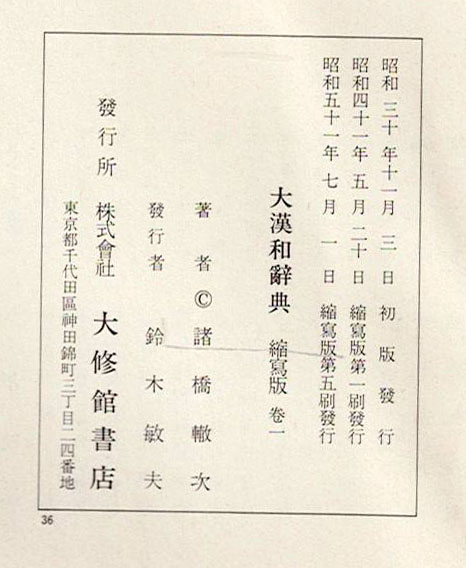 昭和三十年十一月三日初版發行
昭和四十一年五月二十日縮寫版第一刷發行
昭和五十一年七月一日縮寫版第五刷發行
大漢和辭典 縮寫版 卷一
著者©諸橋轍次
發行者 鈴木敏夫
發行所 株式會社 大修館書店
東京都千代田區神田錦町三丁目二四番地
36